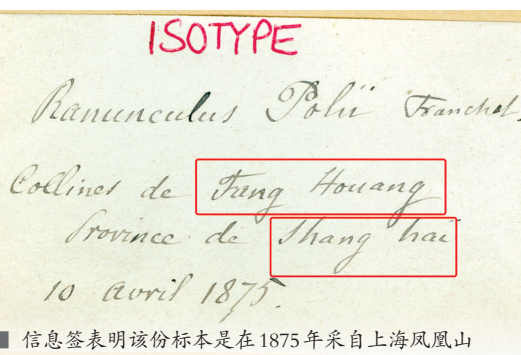 ISOTYPE
Ranunculus Polii Franchet.
Collines de Fang Houang
Province de Shang hai
10 avril 1875.
信息签表明该份标本是在1875年采自上海凤凰山